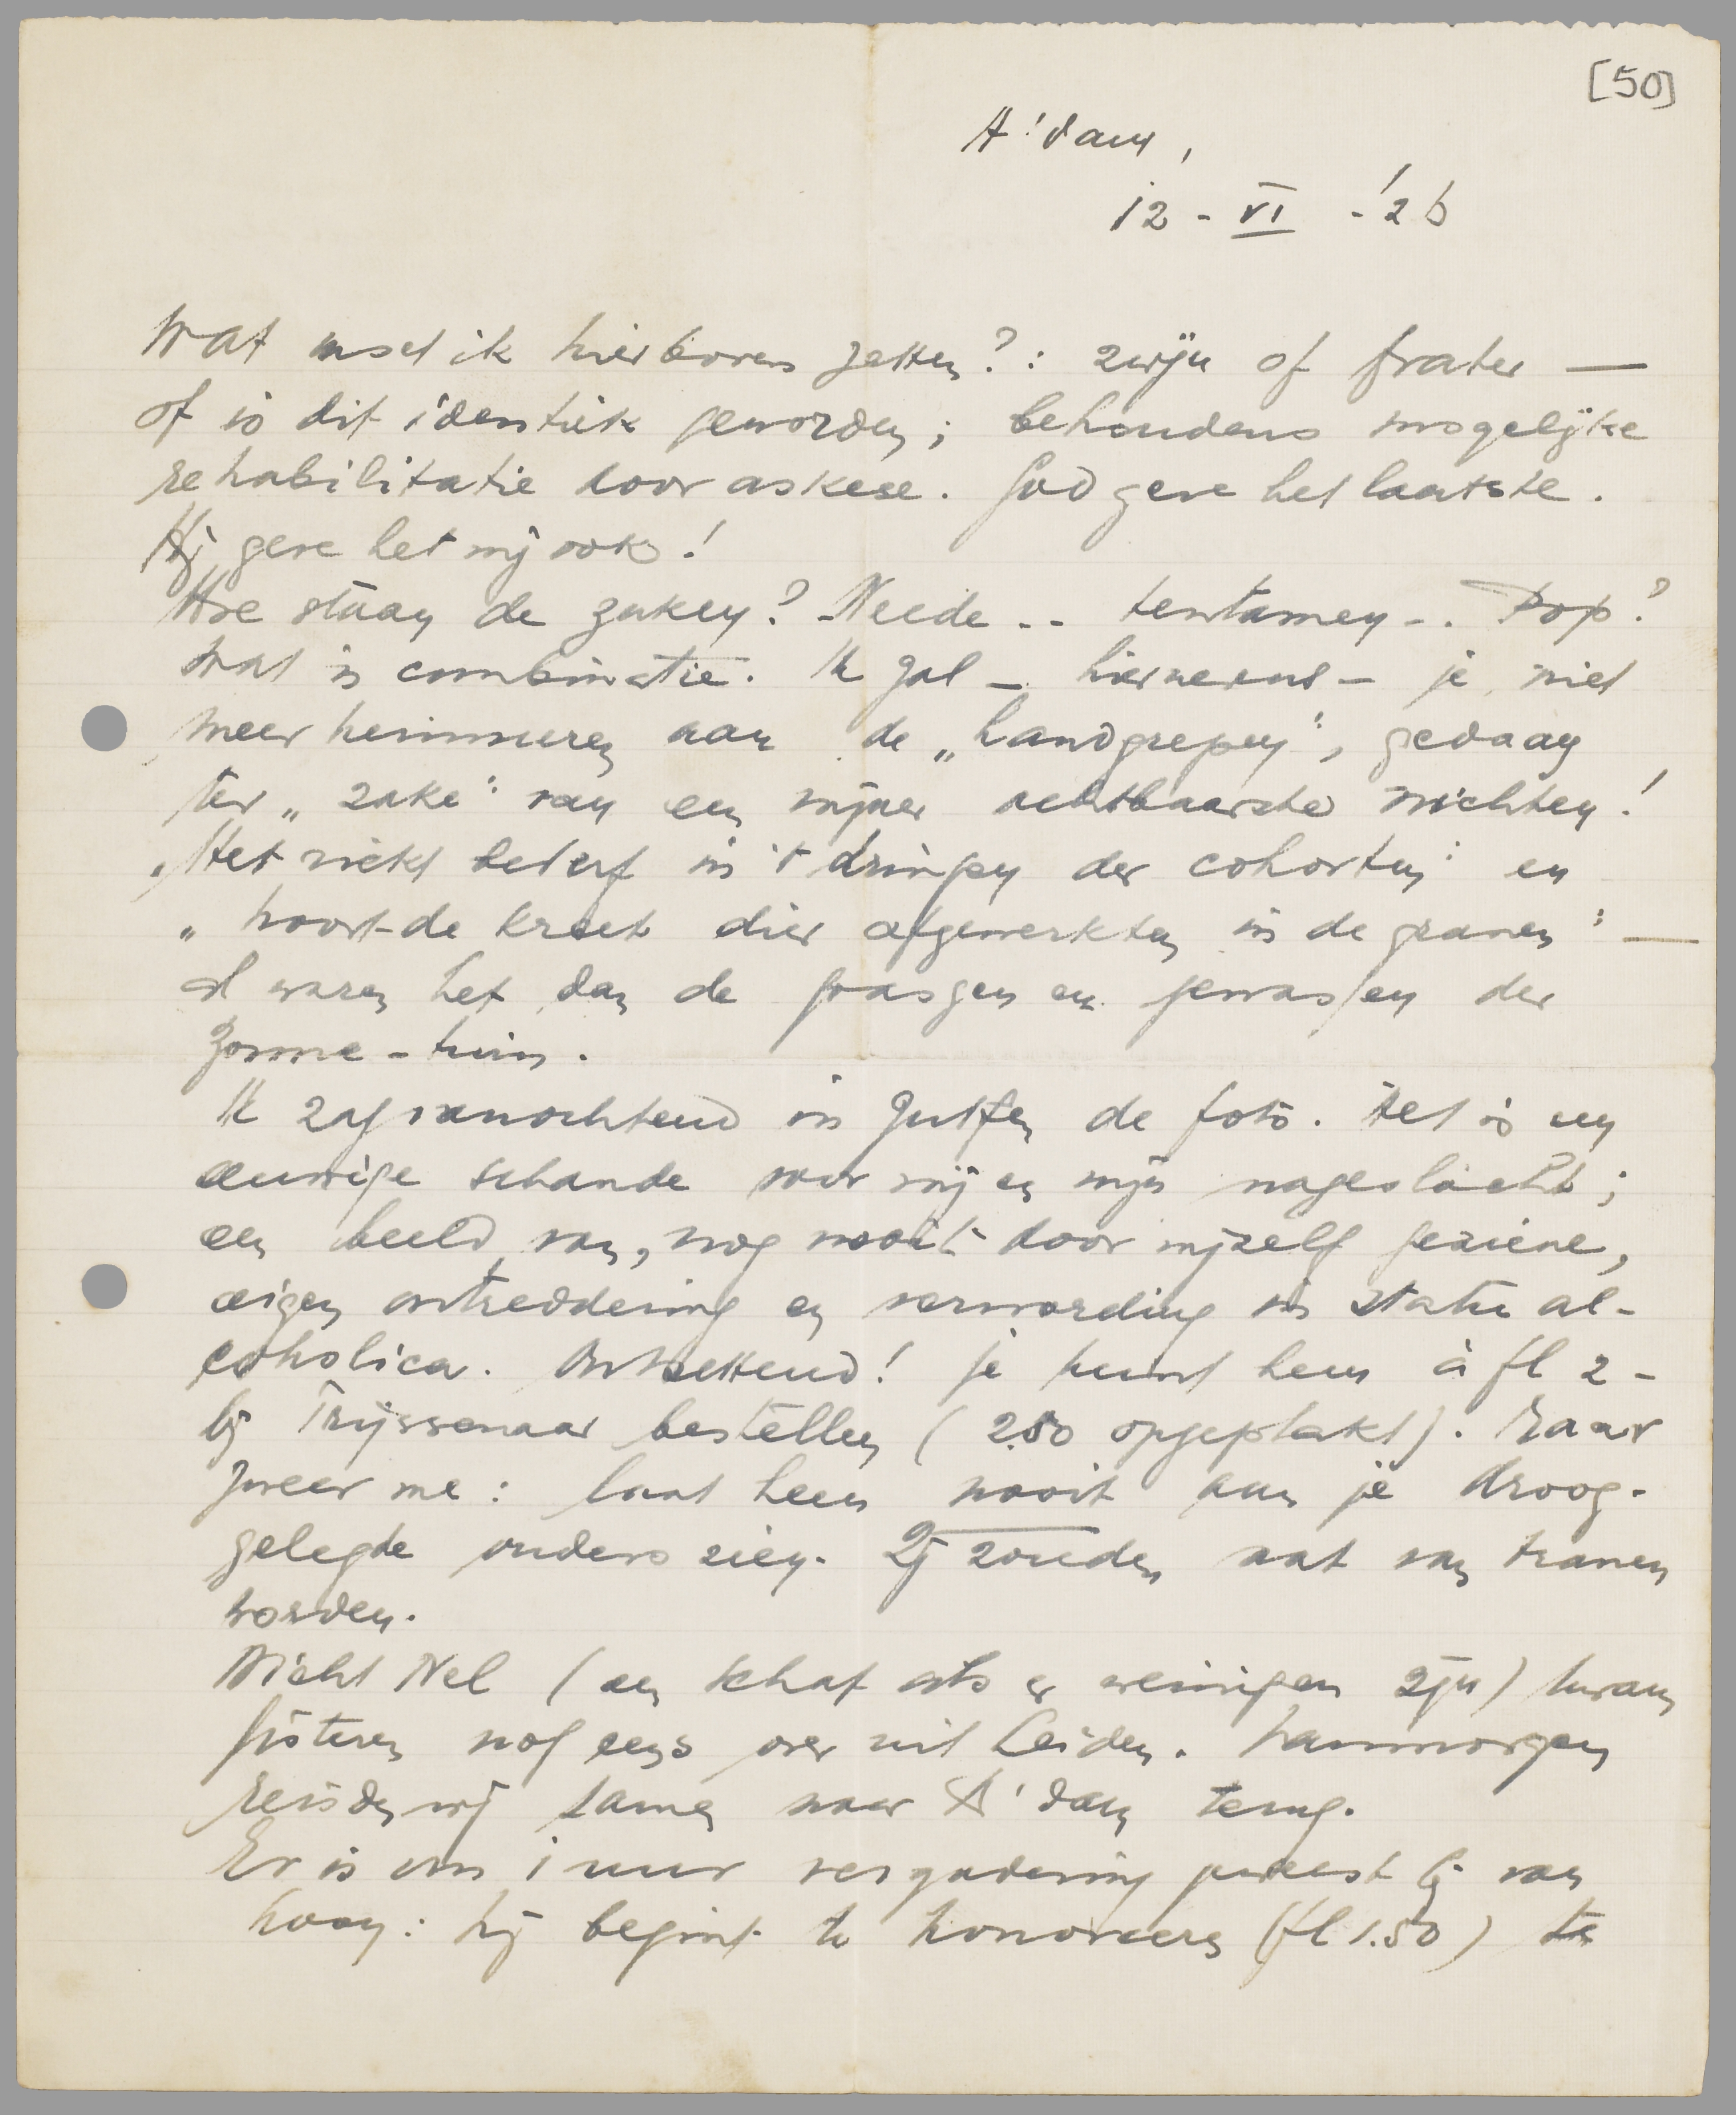 [50]
A'dam,
12 - VI - '26
Wat moet ik hierboven zetten?: zwijn of frater —
of is dit identiek geworden; behoudens mogelijke
rehabilitatie door askese. God geve het laatste.
Hij geve het mij ook!
Hoe staan de zaken? Neede -- tentamen -. Pop?
Wat is combinatie. Ik zal - hiernevens - je niet
meer herinneren aan de „handgrepen", gedaan
ter „zake" van een mijner achtbaarste nichten!
„Het riekt bederf in 't dringen der cohorten" en
„hoort de kreet dier afgewerkten in de graven" —
al waren het dan de grassen en gewassen der
Zonne-tuin.
Ik zag vanochtend in Zutfen de foto. Het is een
eeuwige schande voor mij en mijn nageslacht;
een beeld van, nog nooit door mijzelf geziene,
eigen ontreddering en verwording in statu al-
coholica. Ontzettend! Je kunt hem à fl 2-
bij Trijssenaar bestellen (2.50 opgeplakt). Maar
zweer me: laat hem nooit aan je droog-
gelegde ouders zien. Zij zouden nat van tranen
worden.
Nicht Nel (een schat als er weinigen zijn) kwam
gisteren nog eens over uit Leiden. Vanmorgen
reisden wij samen naar A'dam terug.
Er is om 1 uur vergadering geweest bij van
: hij begint te honoreeren (fl 1.50) te